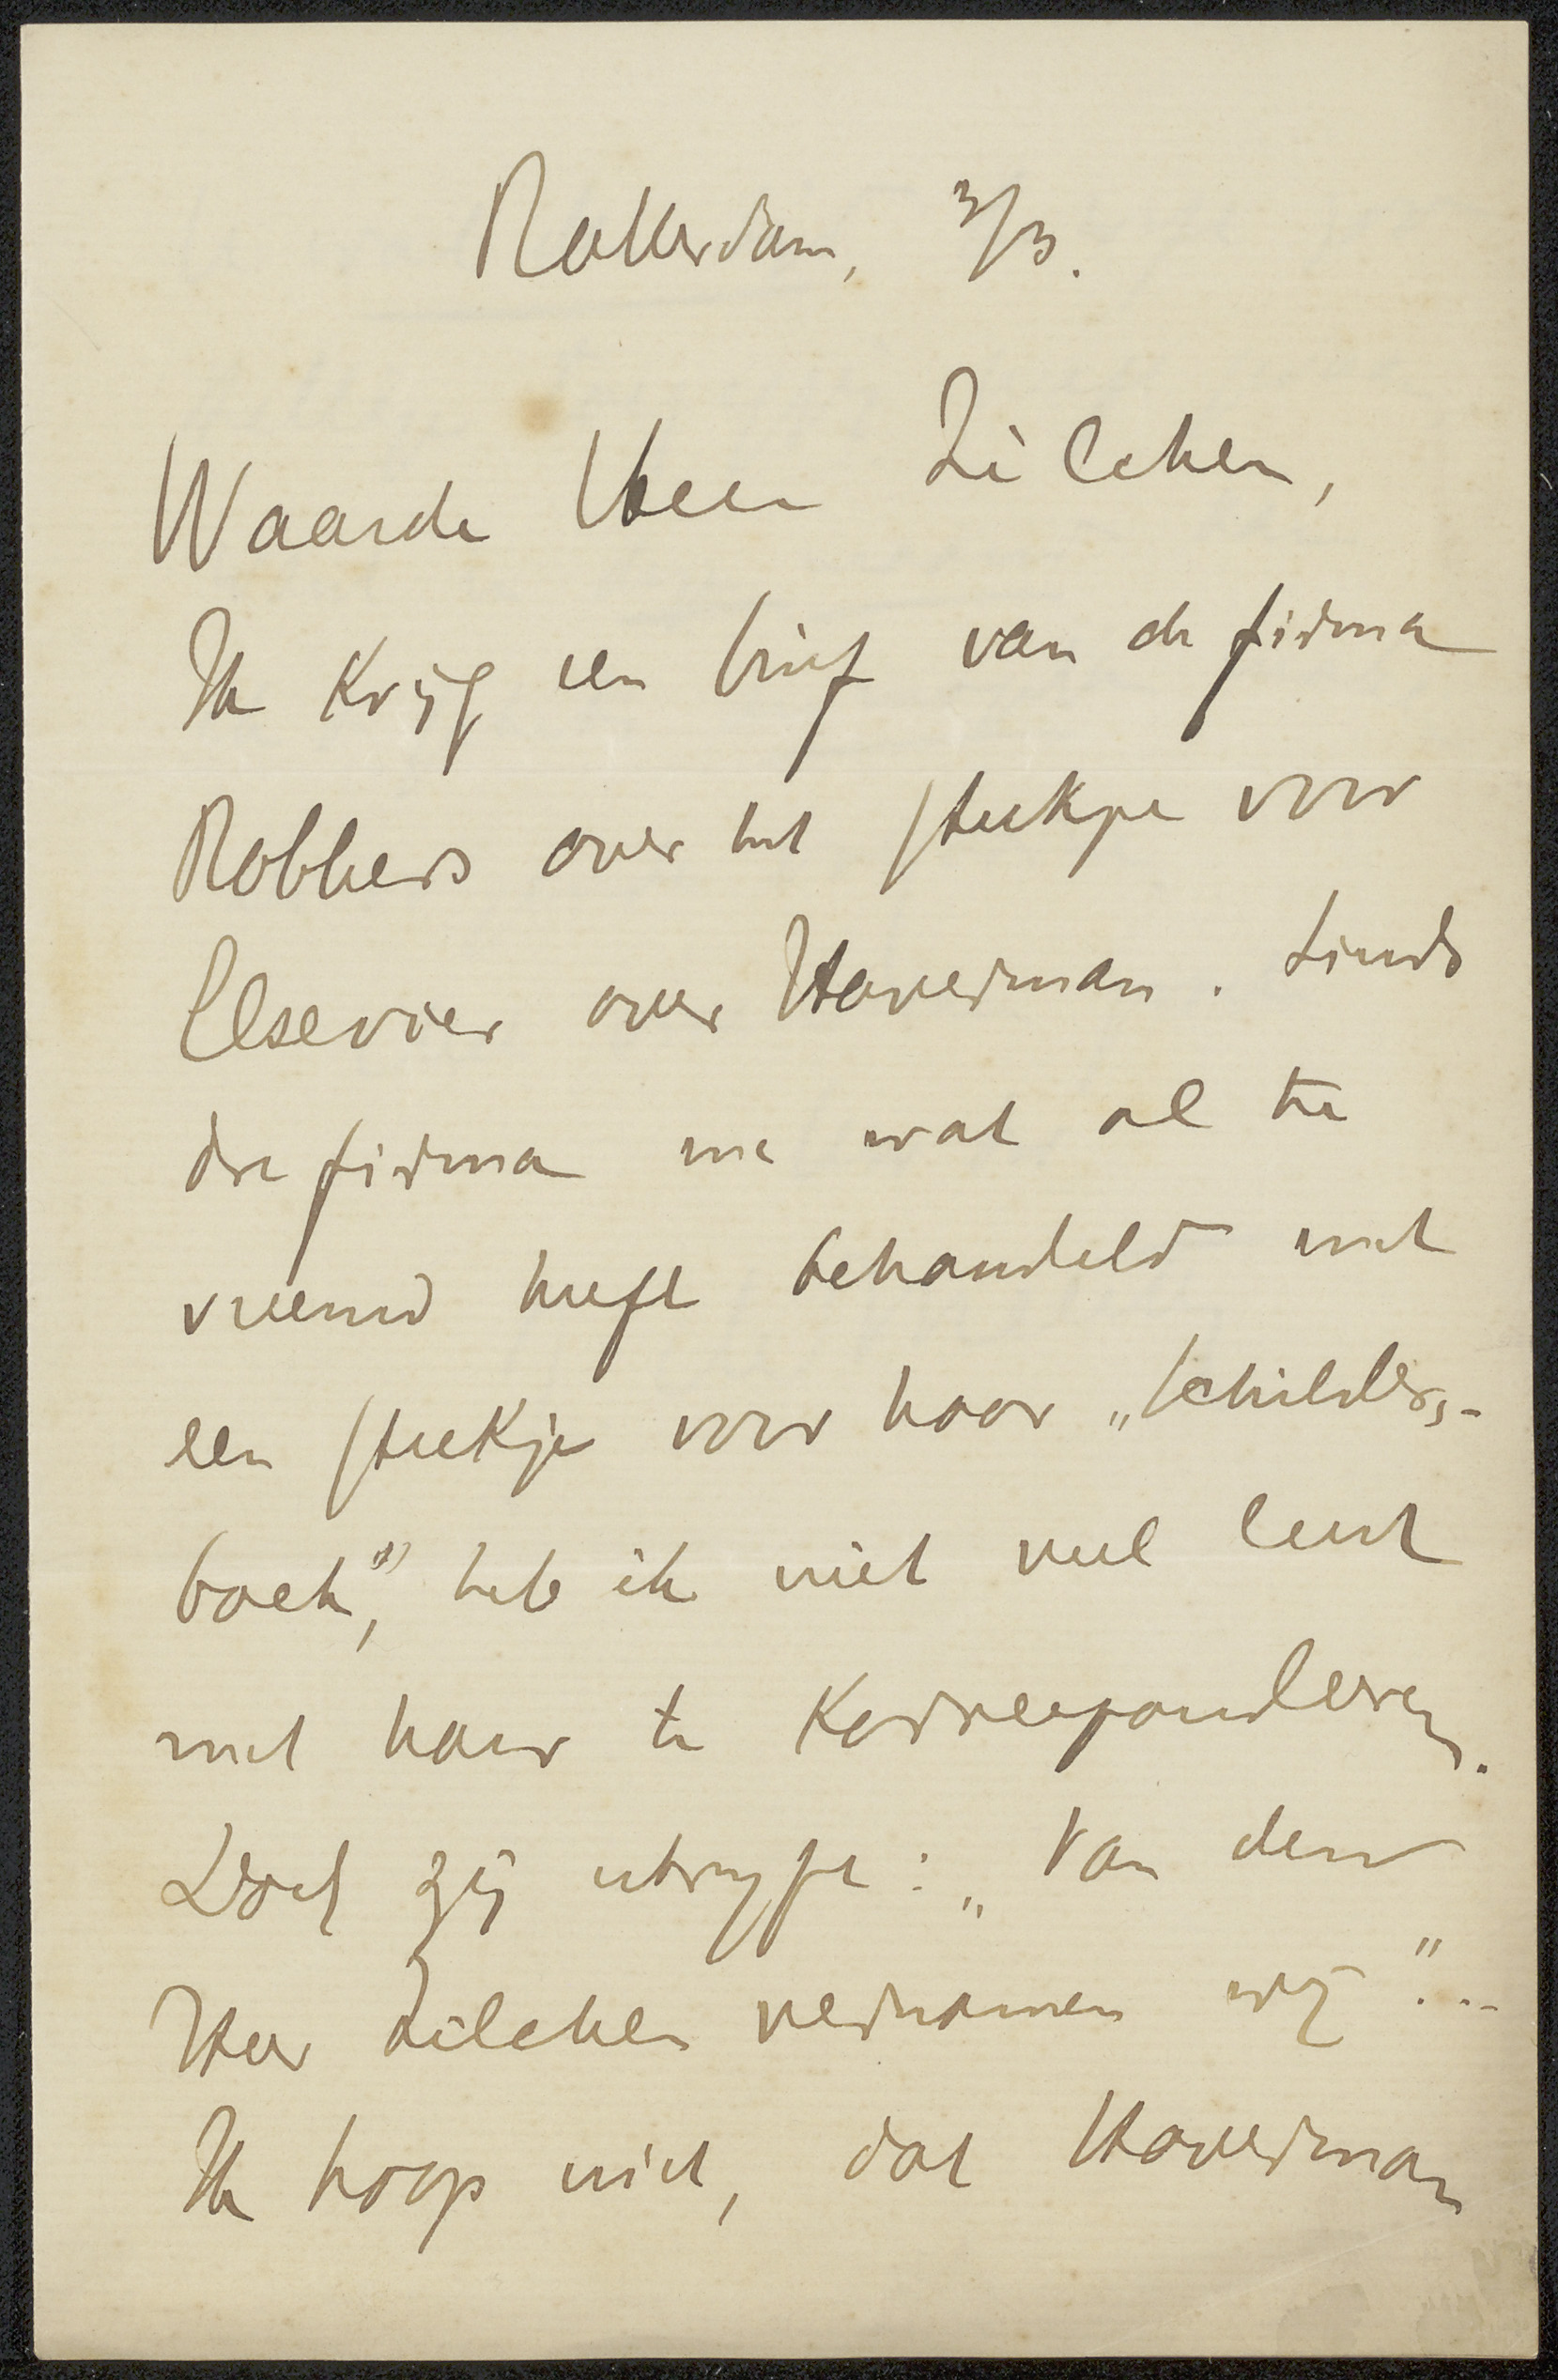 Rotterdam, 3/3.
Waarde Heer Zilcken,
Ik krijg een brief van de firma
Robbers over het stukje voor
Elsevier over Haverman. Sinds
die firma me wat al te
vreemd heeft behandeld met
een stukje voor haar „Schilders-
boek”, heb ik niet veel lust
met haar te korrespondeeren.
Doch zij schrijft: „Van den
Heer Zilcken vernamen wij”...
Ik hoop niet, dat Haverman